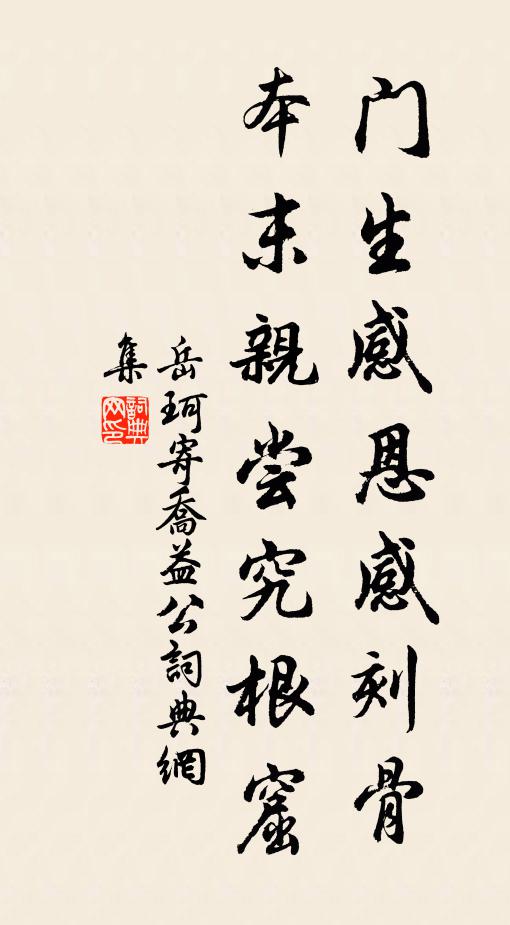 门生感恩感刻骨
本末親尝究根窟
岳珂寄喬益公詞典網
集
詞典
网印